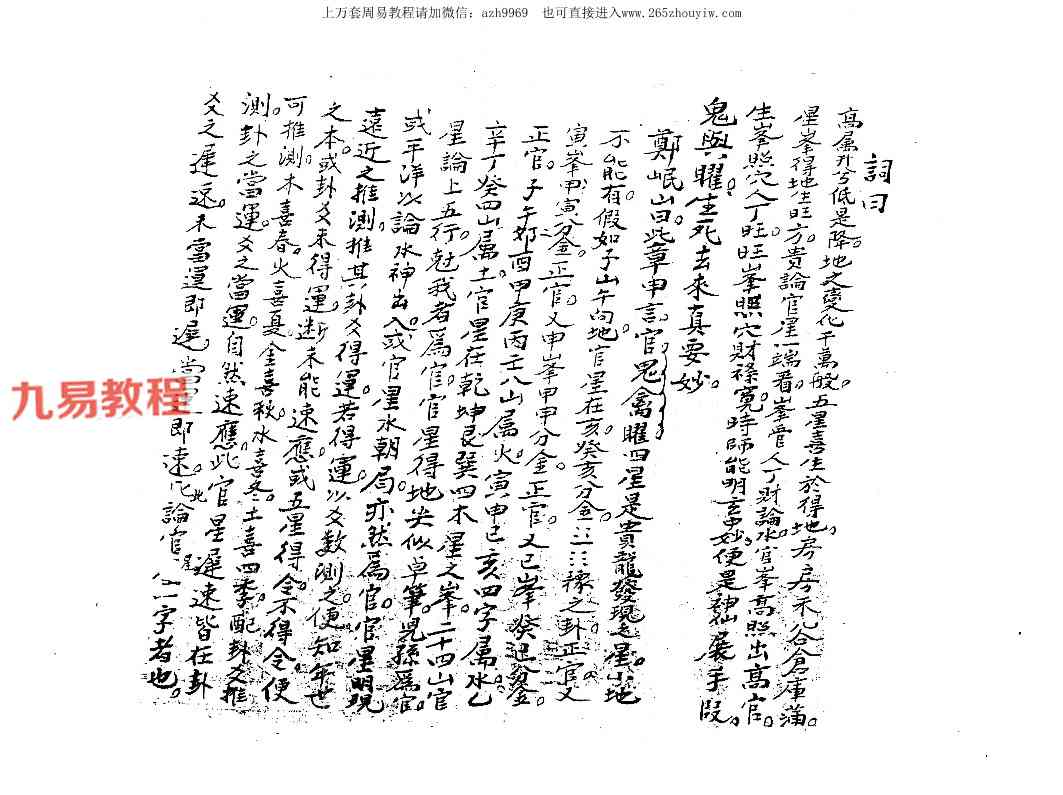 上万套周易教程请加微信：azh9969 也可直接进入www.265zhouyiw.com
詞曰
高属升兮低是降。地之變化千萬般。五星喜生於得地。房房禾谷倉庫滿。
星峯得地生旺方。貴論官星一端看。峯管人丁財論水。官峯高照出高官。
生峯照穴人丁旺。旺峯照穴財祿寬。時師能明玄中妙。便是神仙展手段。
鬼與曜。生死去來真要妙。
鄭岷山曰。此章申言。官鬼禽曜四星是貴龍發現之星。山地
不能有。假如子山午向地官星在亥。癸亥分金。豫之卦正官。又
寅峯甲寅分金。正官。又申峯甲申分金。正官。又巳峯癸巳分金。
正官。子午卯酉甲庚丙壬八山屬火。寅申巳亥四字屬水。乙
辛丁癸四山屬土。官星在乾坤艮巽四木星之峯。二十四山官
星論上五行。尅我者為官。官星得地尖似卓筆。兒孫為官。
或平洋以論水神出入。或官星水朝局。亦然為官。官星明現
遠近之推測。推其卦爻得運。若得運。以爻數測之。便知年世
之本。或卦爻未得運。断未能速應。或五星得令。不得令。便
可推測。木喜春。火喜夏。金喜秋。水喜冬。土喜四季。配卦爻推
測。卦之當運。爻之當運。自然速應。此官星遲速皆在卦
爻之遲速。未當運即遲。當運即速。此論官星 一字者也。
九易教程